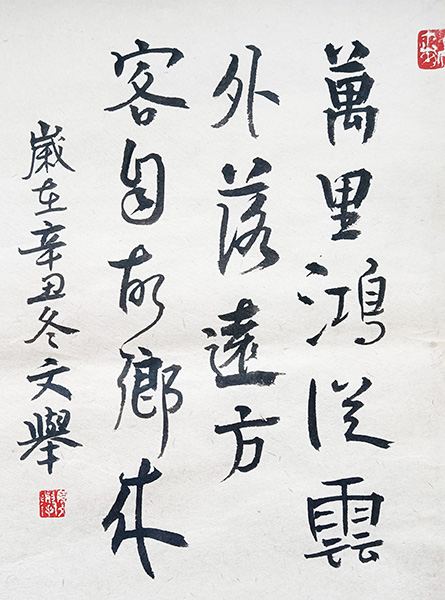 萬里鴻從雲
外落遠方
客自故鄉来
歲在辛丑冬文舉